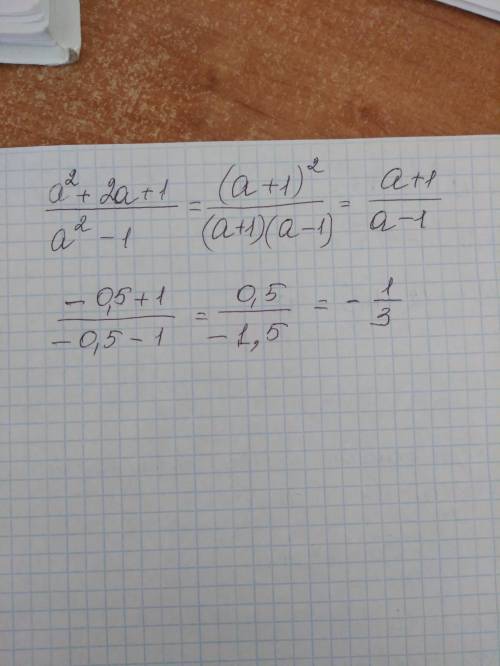 a² + 2a + 1 / a² - 1 = (a + 1)² / (a+1)(a-1) = a+1 / a-1
-0,5+1 / -0,5-1 = 0,5 / -1,5 = -1/3